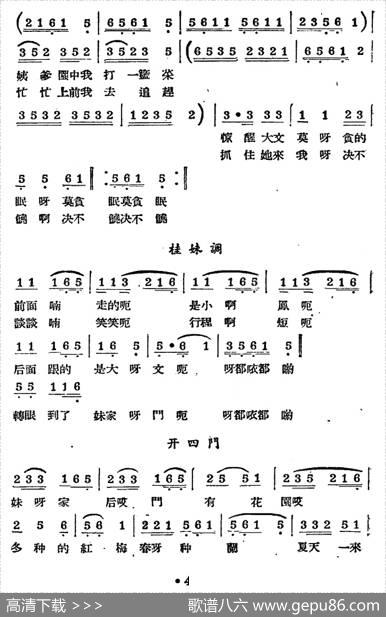 (2161 5 | 6161 5 | 5611 5611 | 2356 1)
352 352 | 3523 5 (6535 2352 | 6561 2
姨爹園中我 打 一籃菜
忙忙上前我 去 追趕
3532 3532 | 1235 2) | 3·3 33 | 1 1 23
惊醒大文 莫呀貪的
抓住她來 我呀决不
5 5 61 | 561 5
眠呀莫貪 眠莫貪 眠
饒啊决不 饒决不 饒
桂妹調
11 165 | 113 216 | 11 165 | 113 216
前面喃 走的呃 是小啊 鳳呃
談談喃 笑笑呃 行程啊 短呃
11 165 | 116 16 | 5·6 1 | 3561 5
后面跟的 是大呀文呃 呀都哝都 啲
55 116
轉眼到了 妹家呀門呃 呀都哝都 啲
开四門
233 165 | 233 165 | 25 51 | 235 216
妹呀家 后哎 門 有 花園哎
2 5 6 | 56 1 | 221 561 | 561 5 | 332 51
多种的紅梅春呀种 蘭 夏天一來
• 4
高清下载 >>> 歌谱八六 www.gepu86.com